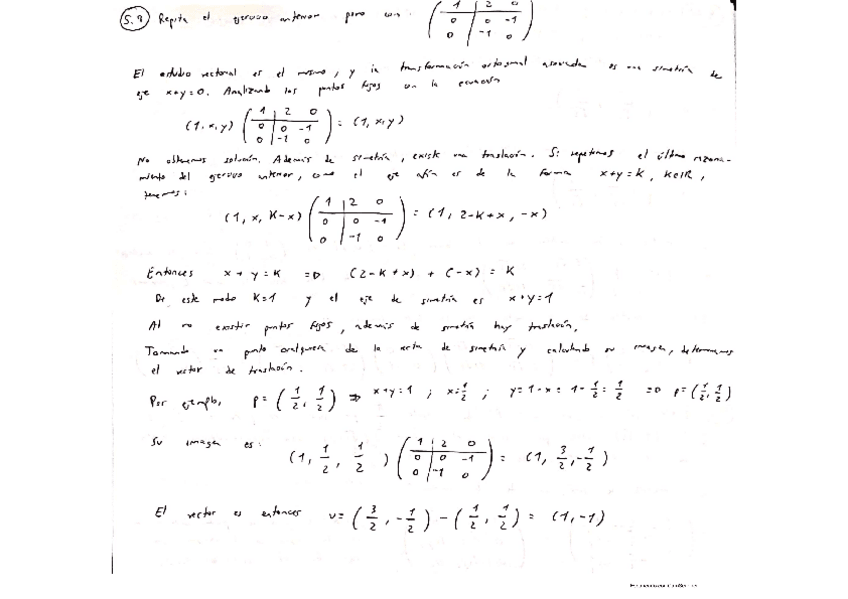 5.9 Repita el ejercicio anterior pero con ( 1 | 2 0 / 0 | 0 -1 / 0 | -1 0 )
El estudio vectorial es el mismo, y la transformación ortogonal asociada es una simetría de
eje x+y=0. Analizando los puntos fijos con la ecuación
(1, x, y) ( 1 | 2 0 / 0 | 0 -1 / 0 | -1 0 ) = (1, x, y)
No obtenemos solución. Además de simetría, existe una traslación. Si repetimos el último razona-
miento del ejercicio anterior, como el eje afín es de la forma x+y=K, K∈IR,
tenemos:
(1, x, K-x) ( 1 | 2 0 / 0 | 0 -1 / 0 | -1 0 ) = (1, 2-K+x, -x)
Entonces x+y=K => (2-K+x) + (-x) = K
De este modo K=1 y el eje de simetría es x+y=1
Al no existir puntos fijos, además de simetría hay traslación.
Tomando un punto cualquiera de la recta de simetría y calculando su imagen, determinamos
el vector de traslación.
Por ejemplo, P=(1/2, 1/2) => x+y=1 ; x=1/2 ; y=1-x=1-1/2=1/2 => P=(1/2, 1/2)
Su imagen es: (1, 1/2, 1/2) ( 1 | 2 0 / 0 | 0 -1 / 0 | -1 0 ) = (1, 3/2, -1/2)
El vector es entonces v=(3/2, -1/2) - (1/2, 1/2) = (1, -1)